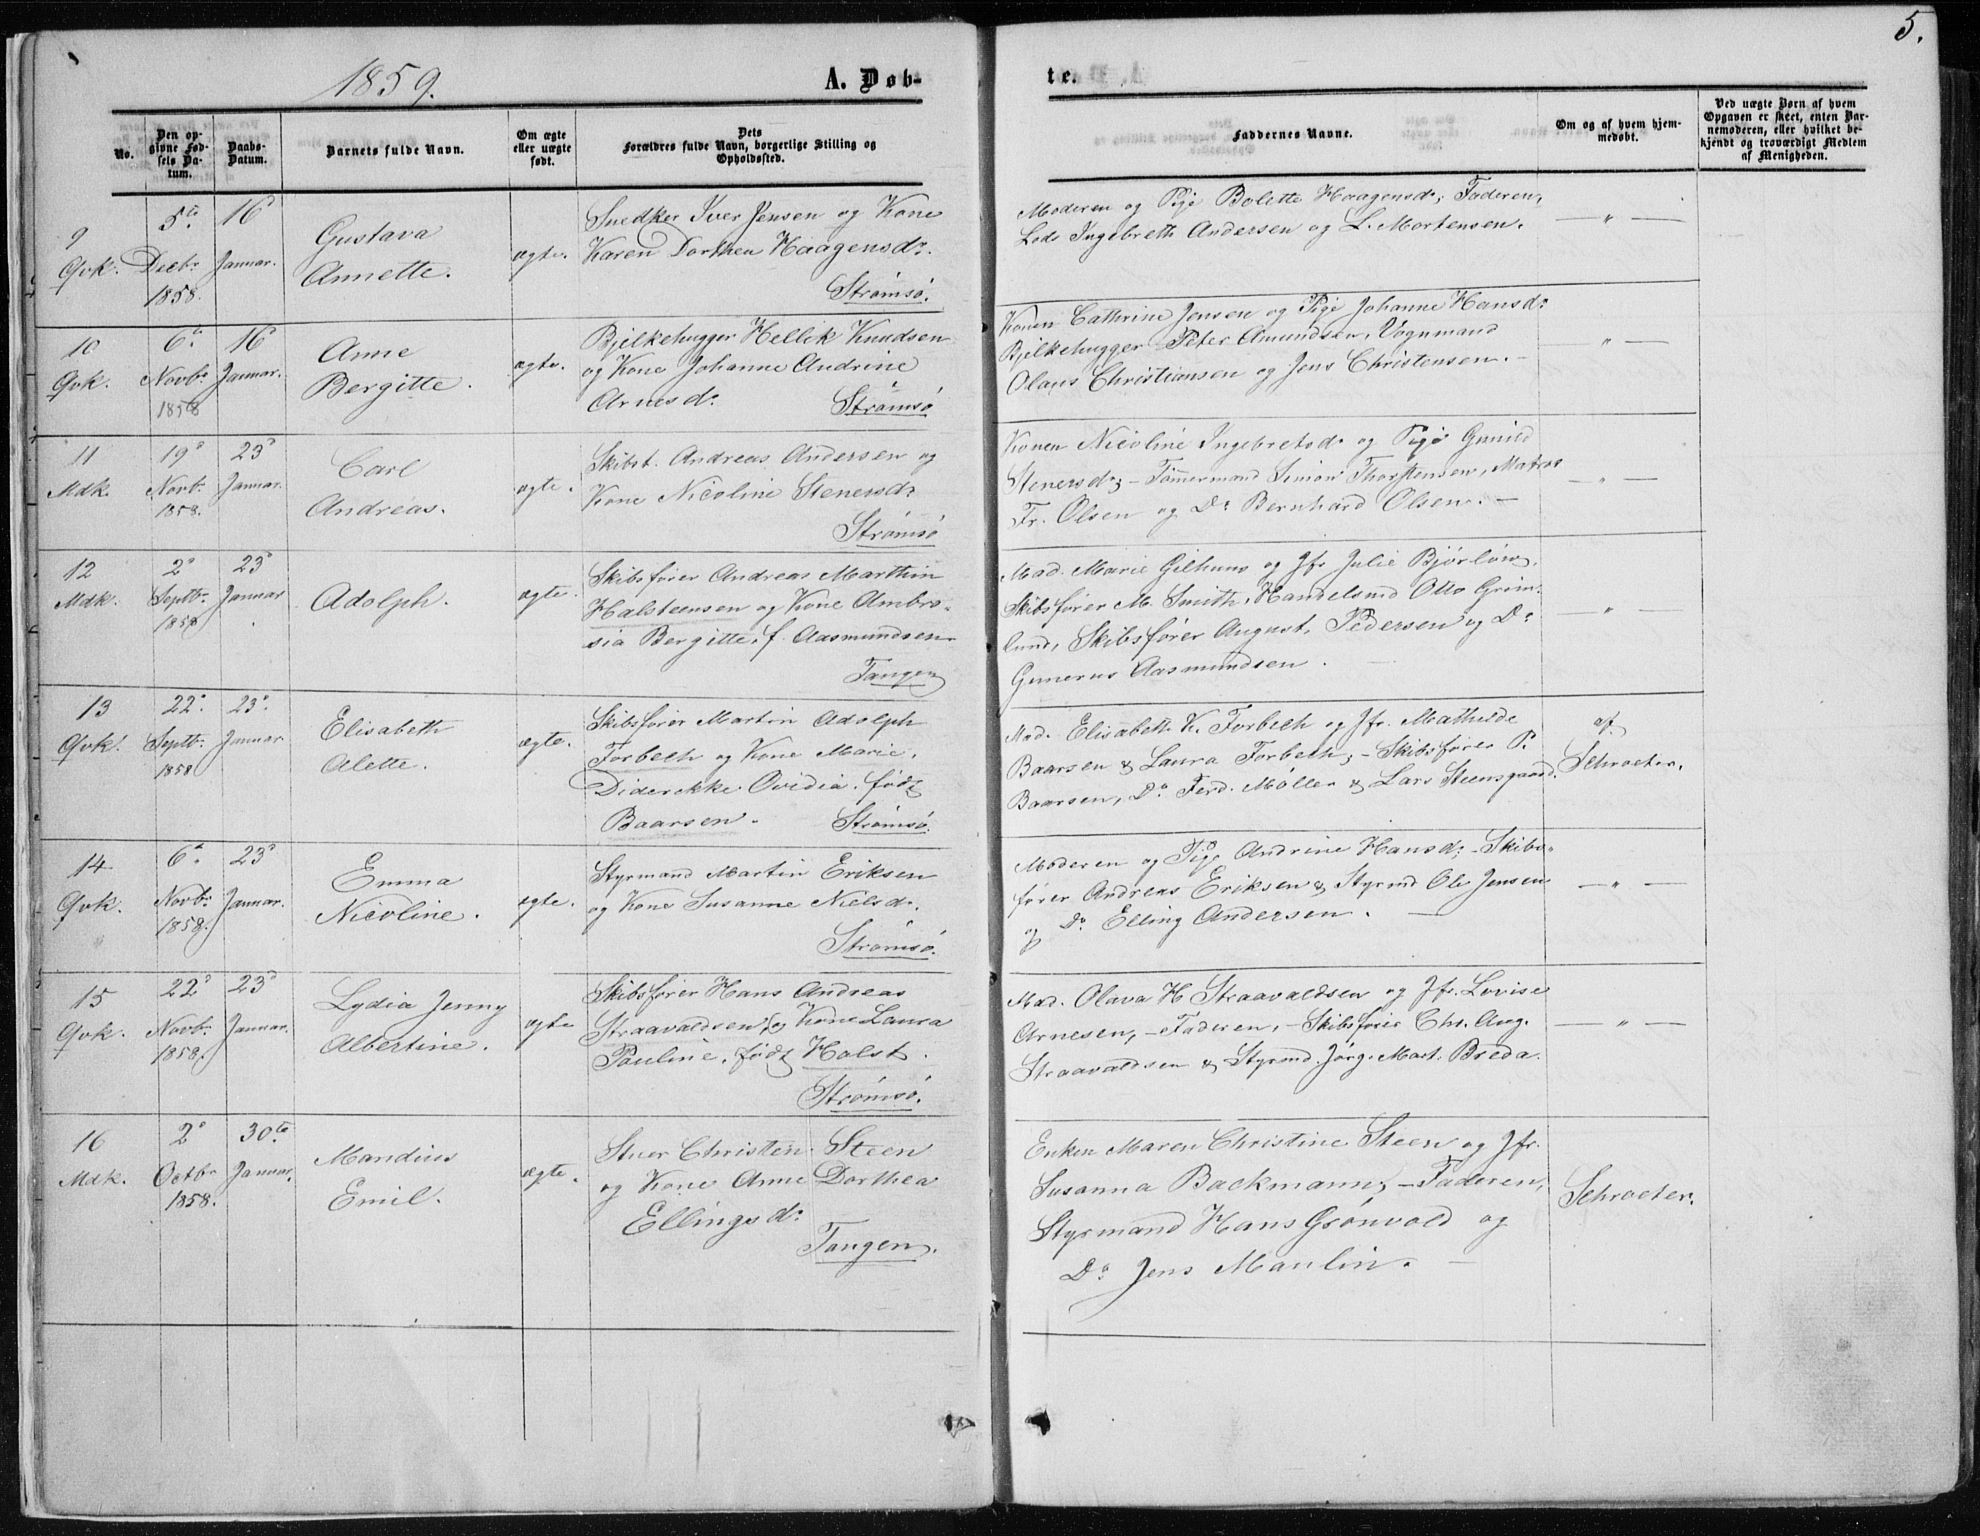 5.
1859.
A. Døb-
te.
No.
Den op-
givne Fød-
sels Da-
tum.
Daabs-
Datum.
Barnets fulde Navn.
Om ægte
eller uægte
født.
Dets
Forældres fulde Navn, borgerlige Stilling og
Opholdssted.
Faddernes Navne.
Om og af hvem hjem-
medøbt.
Ved uægte Børn af hvem
Opgaven er skeet, enten Bar-
nemoderen, eller hvilket be-
kjendt og troværdigt Medlem
af Menigheden.
9
Qvk.
5te
Decbr
1858.
16d
Januar.
Gustava
Annette.
ægte.
Snedker Iver Jensen og Kone
Karen Dorthea Haagensdr.
Strømsø.
Moderen og Pige Bolette Haagensdr, Faderen,
Lods Ingebreth Andersen og L. Mortensen.
— " —
10
Qvk.
6te
Novbr
1858
16d
Januar.
Anne
Bergitte.
ægte.
Bjelkehugger Hellik Knudsen
og Kone Johanne Andrine
Arnesdr
Strømsø
Konen Cathrine Jensen og Pige Johanne Hansdr
Bjelkehugger Peter Amundsen, Vognmand
Olaus Christiansen og Jens Christensen. -
— " —
11
Mdk.
19d
Novb.
1858.
23d
Januar.
Carl
Andreas.
ægte.
Skibst. Andreas Andersen og
Kone Nicoline Stenersdr
Strømsø
Konen Nicoline Ingebretsdr og Pige Gunild
Stenersdr, - Tømmermand Simon Thorstensen, Matros
Fr. Olsen og Do Bernhard Olsen. -
— " —
12
Mdk.
2d
Septbr.
1858
23d
Januar
Adolph.
ægte.
Skibsfører Andreas Marthin
Halsteensen og Kone Ambro-
sia Bergitte, f. Aasmundsen
Tangen
Mad. Marie Gilhuus og Jfr Julie
Skibsfører M. Smith, Handelsmd Otto Grøn-
lund, Skibsfører August Pedersen og Do
Gunerus Aasmundsen.
— " —
13
Qvk.
22d
Septbr.
1858
23d
Januar
Elisabeth
Alette.
ægte.
Skibsfører Martin Adolph
Forbech og Kone Marie,
Diderikke Ovidia, født
Baarsen.
Strømsø.
Mad. Elisabeth K. Forbech og Jfr. Mathilde
Baarsen & Laura Forbech, - Skibsfører P.
Baarsen, Do Ferd. Møller & Lars Steensgaard.
af
Schroeter.
14
Qvk.
6te
Novbr
1858.
23d
Januar.
Emma
Nicoline.
ægte.
Styrmand Martin Eriksen
og Kone Susanne Nielsdr,
Strømsø.
Moderen og Pige Andrine Hansdr, - Skibs-
fører Andreas Eriksen & Styrmd Ole Jensen
og Do Elling Andersen. —
— " —
15
Qvk.
22d
Novbr.
1858.
23d
Januar.
Lydia Jenny
Albertine.
ægte
Skibsfører Hans Andreas
Straavaldsen og Kone Laura
Pauline, født Holst.
Strømsø.
Mad. Olava H Straavaldsen og Jfr. Lovise
Arnesen, - Faderen, - Skibsfører Chr. Aug.
Straavaldsen & Styrmd. Jørg. Mart. Breda.
— " —
16
Mdk.
2d
Octbr
1858.
30te
Januar.
Mandius
Emil.
ægte.
Stuer Christen Steen
og Kone Anne Dorthea
Ellingsdr
Tangen.
Enken Maren Christine Steen og Jfr.
Susanna Backmann, - Faderen,
Styrmand Hans Grønvold og
Do Jens Maulin. —
Schroeter.